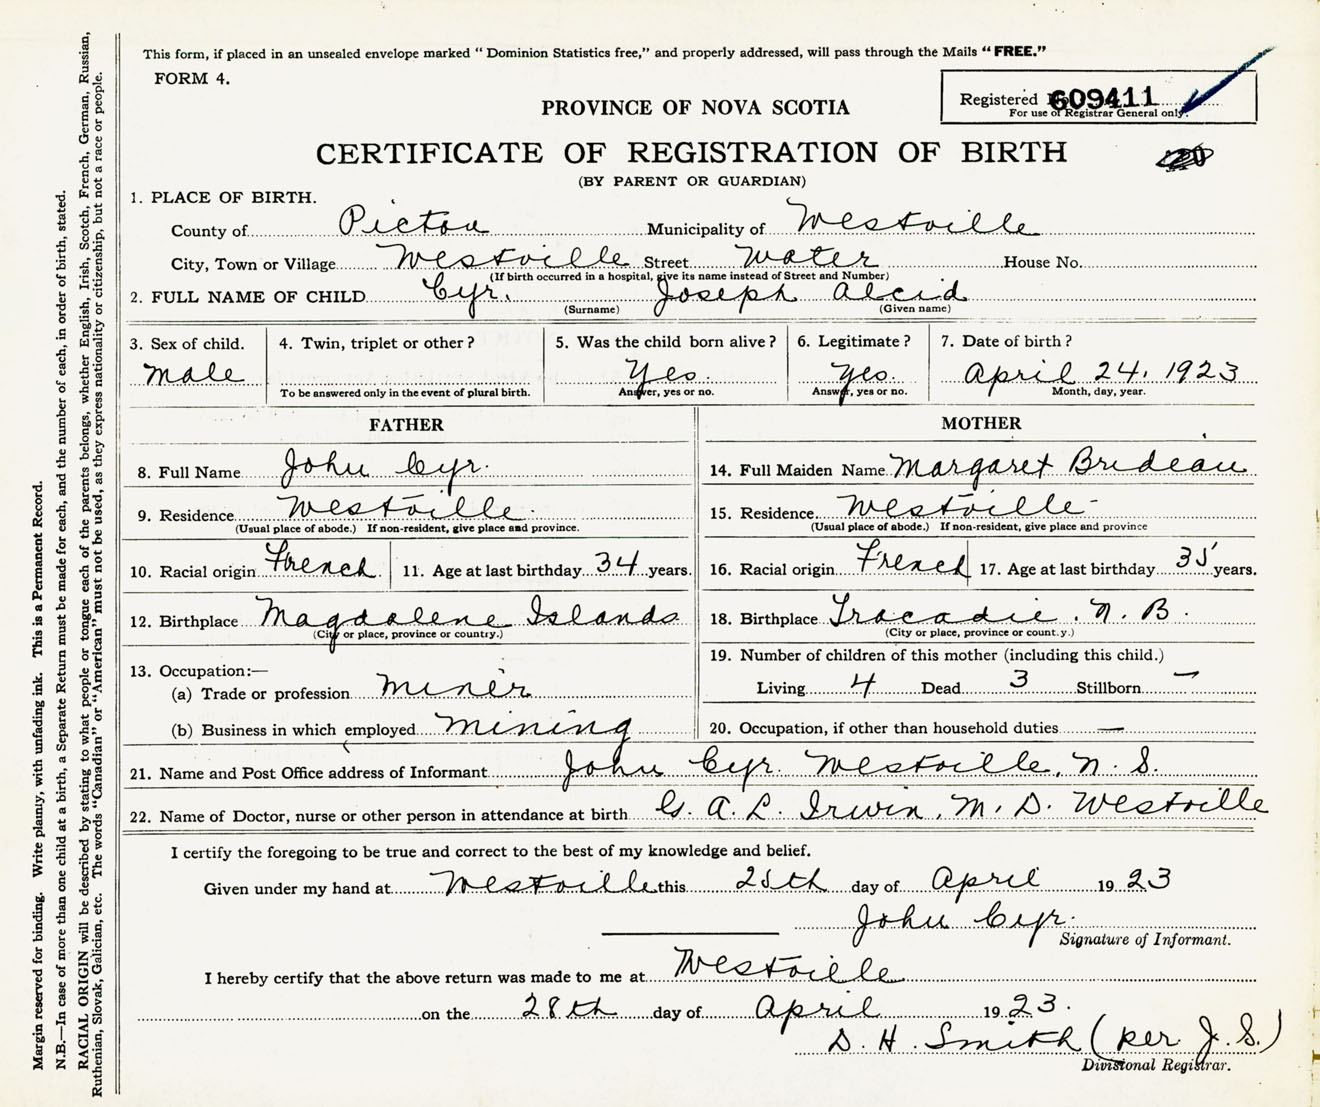 This form, if placed in an unsealed envelope marked " Dominion Statistics free," and properly addressed, will pass through the Mails " FREE."
FORM 4.
Registered No. 609411
For use of Registrar General only.
PROVINCE OF NOVA SCOTIA
CERTIFICATE OF REGISTRATION OF BIRTH
(BY PARENT OR GUARDIAN)
1. PLACE OF BIRTH.
County of Pictou Municipality of Westville
City, Town or Village Westville Street Water House No.
(If birth occurred in a hospital, give its name instead of Street and Number)
2. FULL NAME OF CHILD Cyr. Joseph Alcid
(Surname) (Given name)
3. Sex of child. 4. Twin, triplet or other? 5. Was the child born alive? 6. Legitimate? 7. Date of birth?
Male Yes. Yes. April 24. 1923
To be answered only in the event of plural birth. Answer, yes or no. Answer, yes or no. Month, day, year.
FATHER
8. Full Name John Cyr.
9. Residence Westville.
(Usual place of abode.) If non-resident, give place and province.
10. Racial origin French 11. Age at last birthday 34 years.
12. Birthplace Magdalene Islands
(City or place, province or country.)
13. Occupation:—
(a) Trade or profession Miner
(b) Business in which employed Mining
MOTHER
14. Full Maiden Name Margaret Brideau
15. Residence Westville -
(Usual place of abode.) If non-resident, give place and province
16. Racial origin French 17. Age at last birthday 35 years.
18. Birthplace Tracadie. N. B.
(City or place, province or count.y.)
19. Number of children of this mother (including this child.)
Living 4 Dead 3 Stillborn —
20. Occupation, if other than household duties —
21. Name and Post Office address of Informant John Cyr. Westville, N. S.
22. Name of Doctor, nurse or other person in attendance at birth G. A. L. Irwin, M. D. Westville
I certify the foregoing to be true and correct to the best of my knowledge and belief.
Given under my hand at Westville this 25th day of April 1923
John Cyr.
Signature of Informant.
I hereby certify that the above return was made to me at Westville
on the 28th day of April 1923.
D. H. Smith (per J. S.)
Divisional Registrar.
Margin reserved for binding. Write plainly, with unfading ink. This is a Permanent Record.
N.B.—In case of more than one child at a birth, a Separate Return must be made for each, and the number of each, in order of birth, stated.
RACIAL ORIGIN will be described by stating to what people or tongue each of the parents belongs, whether English, Irish, Scotch, French, German, Russian,
Ruthenian, Slovak, Galician, etc. The words "Canadian" or "American" must not be used, as they express nationality or citizenship, but not a race or people.